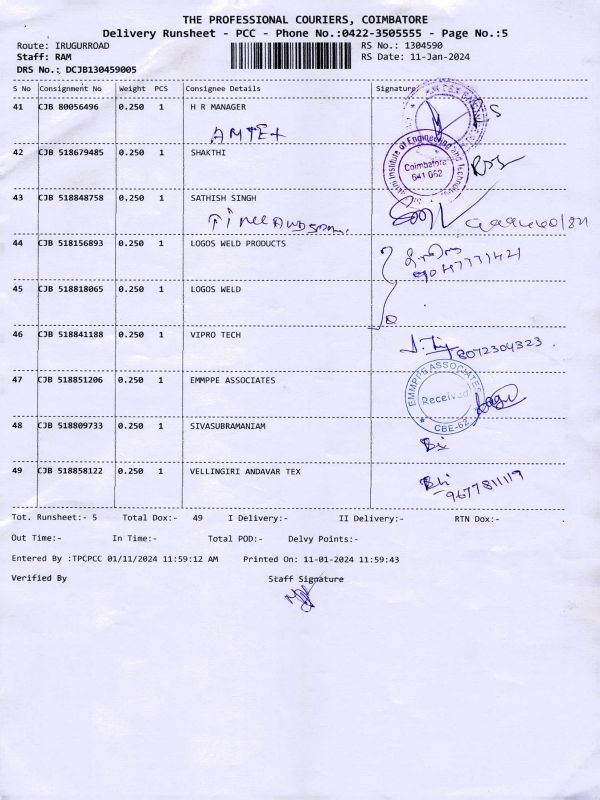 THE PROFESSIONAL COURIERS, COIMBATORE
Delivery Runsheet - PCC - Phone No.:0422-3505555 - Page No.:5
Route: IRUGURROAD RS No.: 1304590
Staff: RAM RS Date: 11-Jan-2024
DRS No.: DCJB130459005
S No Consignment No Weight PCS Consignee Details Signature
41 CJB 80056496 0.250 1 H R MANAGER
AMTEX
42 CJB 518679485 0.250 1 SHAKTHI
Institute of Engineering and Technology
Coimbatore
641 062
43 CJB 518848758 0.250 1 SATHISH SINGH
44 CJB 518156893 0.250 1 LOGOS WELD PRODUCTS
45 CJB 518818065 0.250 1 LOGOS WELD
46 CJB 518841188 0.250 1 VIPRO TECH
8072304323
47 CJB 518851206 0.250 1 EMMPPE ASSOCIATES
EMMPPE ASSOCIATES
Received
CBE-62
48 CJB 518809733 0.250 1 SIVASUBRAMANIAM
49 CJB 518858122 0.250 1 VELLINGIRI ANDAVAR TEX
9677811119
Tot. Runsheet:- 5 Total Dox:- 49 I Delivery:- II Delivery:- RTN Dox:-
Out Time:- In Time:- Total POD:- Delvy Points:-
Entered By :TPCPCC 01/11/2024 11:59:12 AM Printed On: 11-01-2024 11:59:43
Verified By Staff Signature